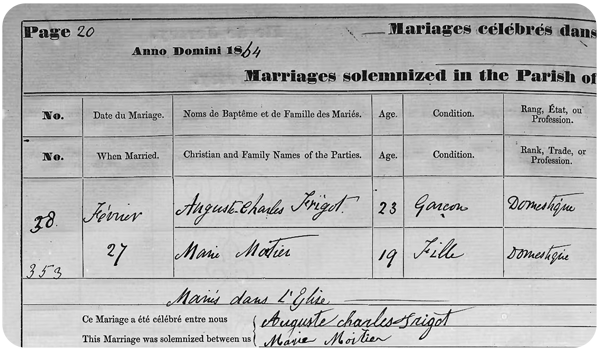 Page 20 Mariages célébrés dans
Anno Domini 1864
Marriages solemnized in the Parish of
No. Date du Mariage. Noms de Baptême et de Famille des Mariés. Age. Condition. Rang, État, ou Profession.
No. When Married. Christian and Family Names of the Parties. Age. Condition. Rank, Trade, or Profession.
38. Février Auguste Charles Frigot. 23 Garçon Domestique
353 27 Marie Motier 19 Fille Domestique
Mariés dans L'Eglise
Ce Mariage a été célébré entre nous Auguste charles Frigot
This Marriage was solemnized between us Marie Moitier